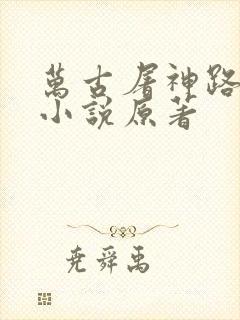 萬古屠神路
小說原著
堯舜禹